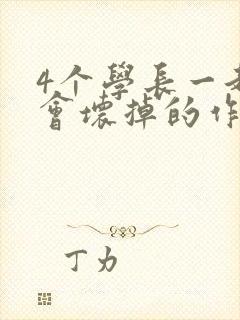 4个學長一
會壞掉的作
丁力